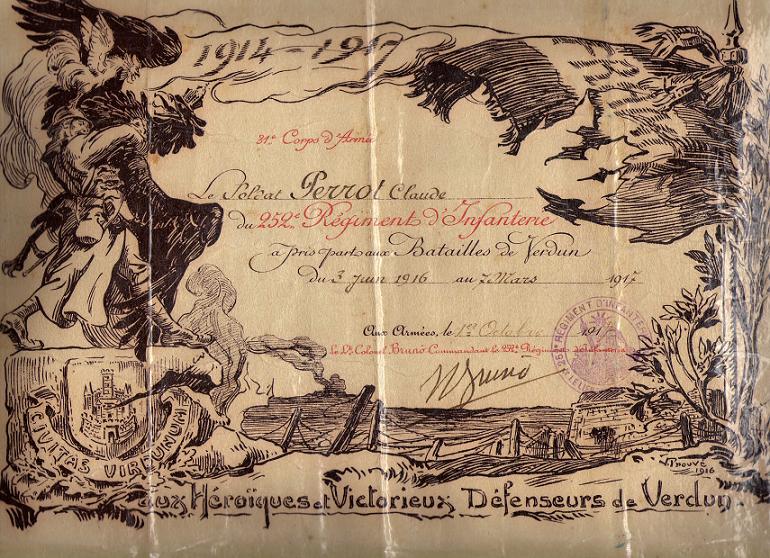 1914-1917
31e Corps d'Armée
Le Soldat Perrot Claude
du 252e Régiment d'Infanterie
a pris part aux Batailles de Verdun
du 3 Juin 1916 au 7 Mars 1917
Aux Armées, le 1er Octobre 191
le Lt Colonel Bruno Commandant le 252e Régiment d'Infanterie
Bruno
RÉGIMENT D'INFANTERIE
CIVITAS VIRDUNUM
Trouvé
1916
aux Héroïques et Victorieux Défenseurs de Verdun